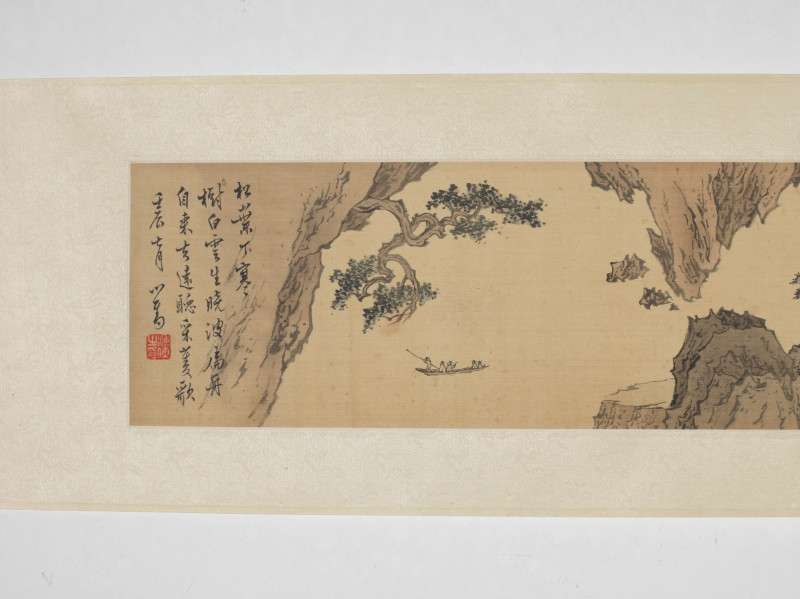 松葉下寒
樹白雲生曉波扁舟
自來去遠聽采菱歌
壬辰七月 心畬